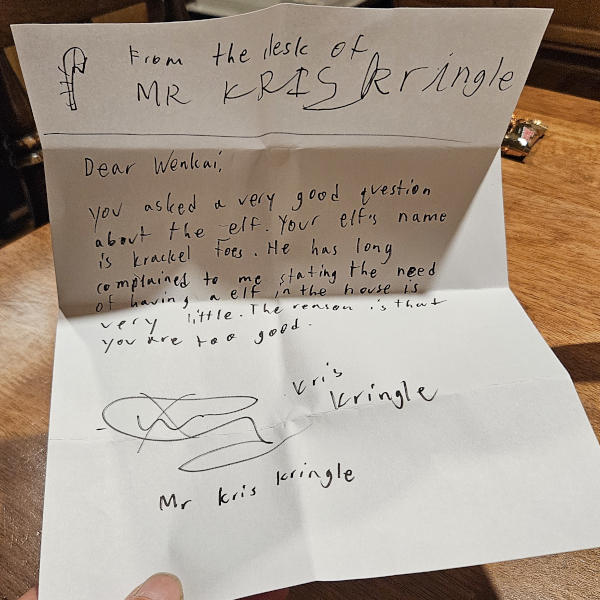 From the desk of
MR KRIS Kringle
Dear Wenkai,
you asked a very good question
about the elf. Your elf's name
is krackel toes. He has long
complained to me stating the need
of having a elf in the house is
very little. The reason is that
you are too good.
Kris
Kringle
Mr Kris Kringle